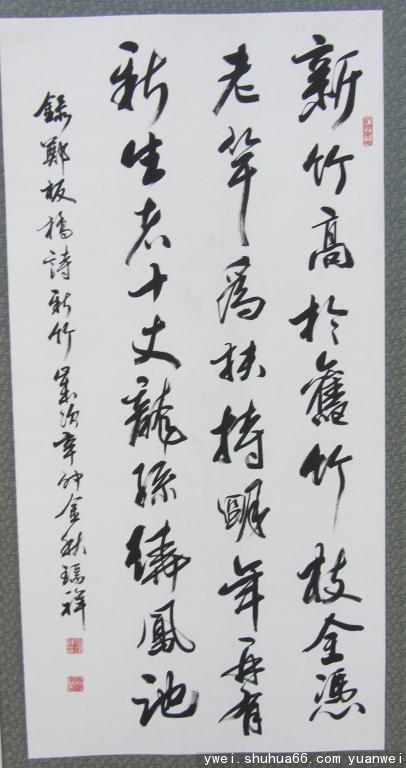 新竹高於舊竹枝全憑
老竿為扶持明年再有
新生者十丈龍孫繞鳳池
錄鄭板橋詩新竹歲次辛卯金秋瑞祥
ywei.shuhua66.com yuanwei